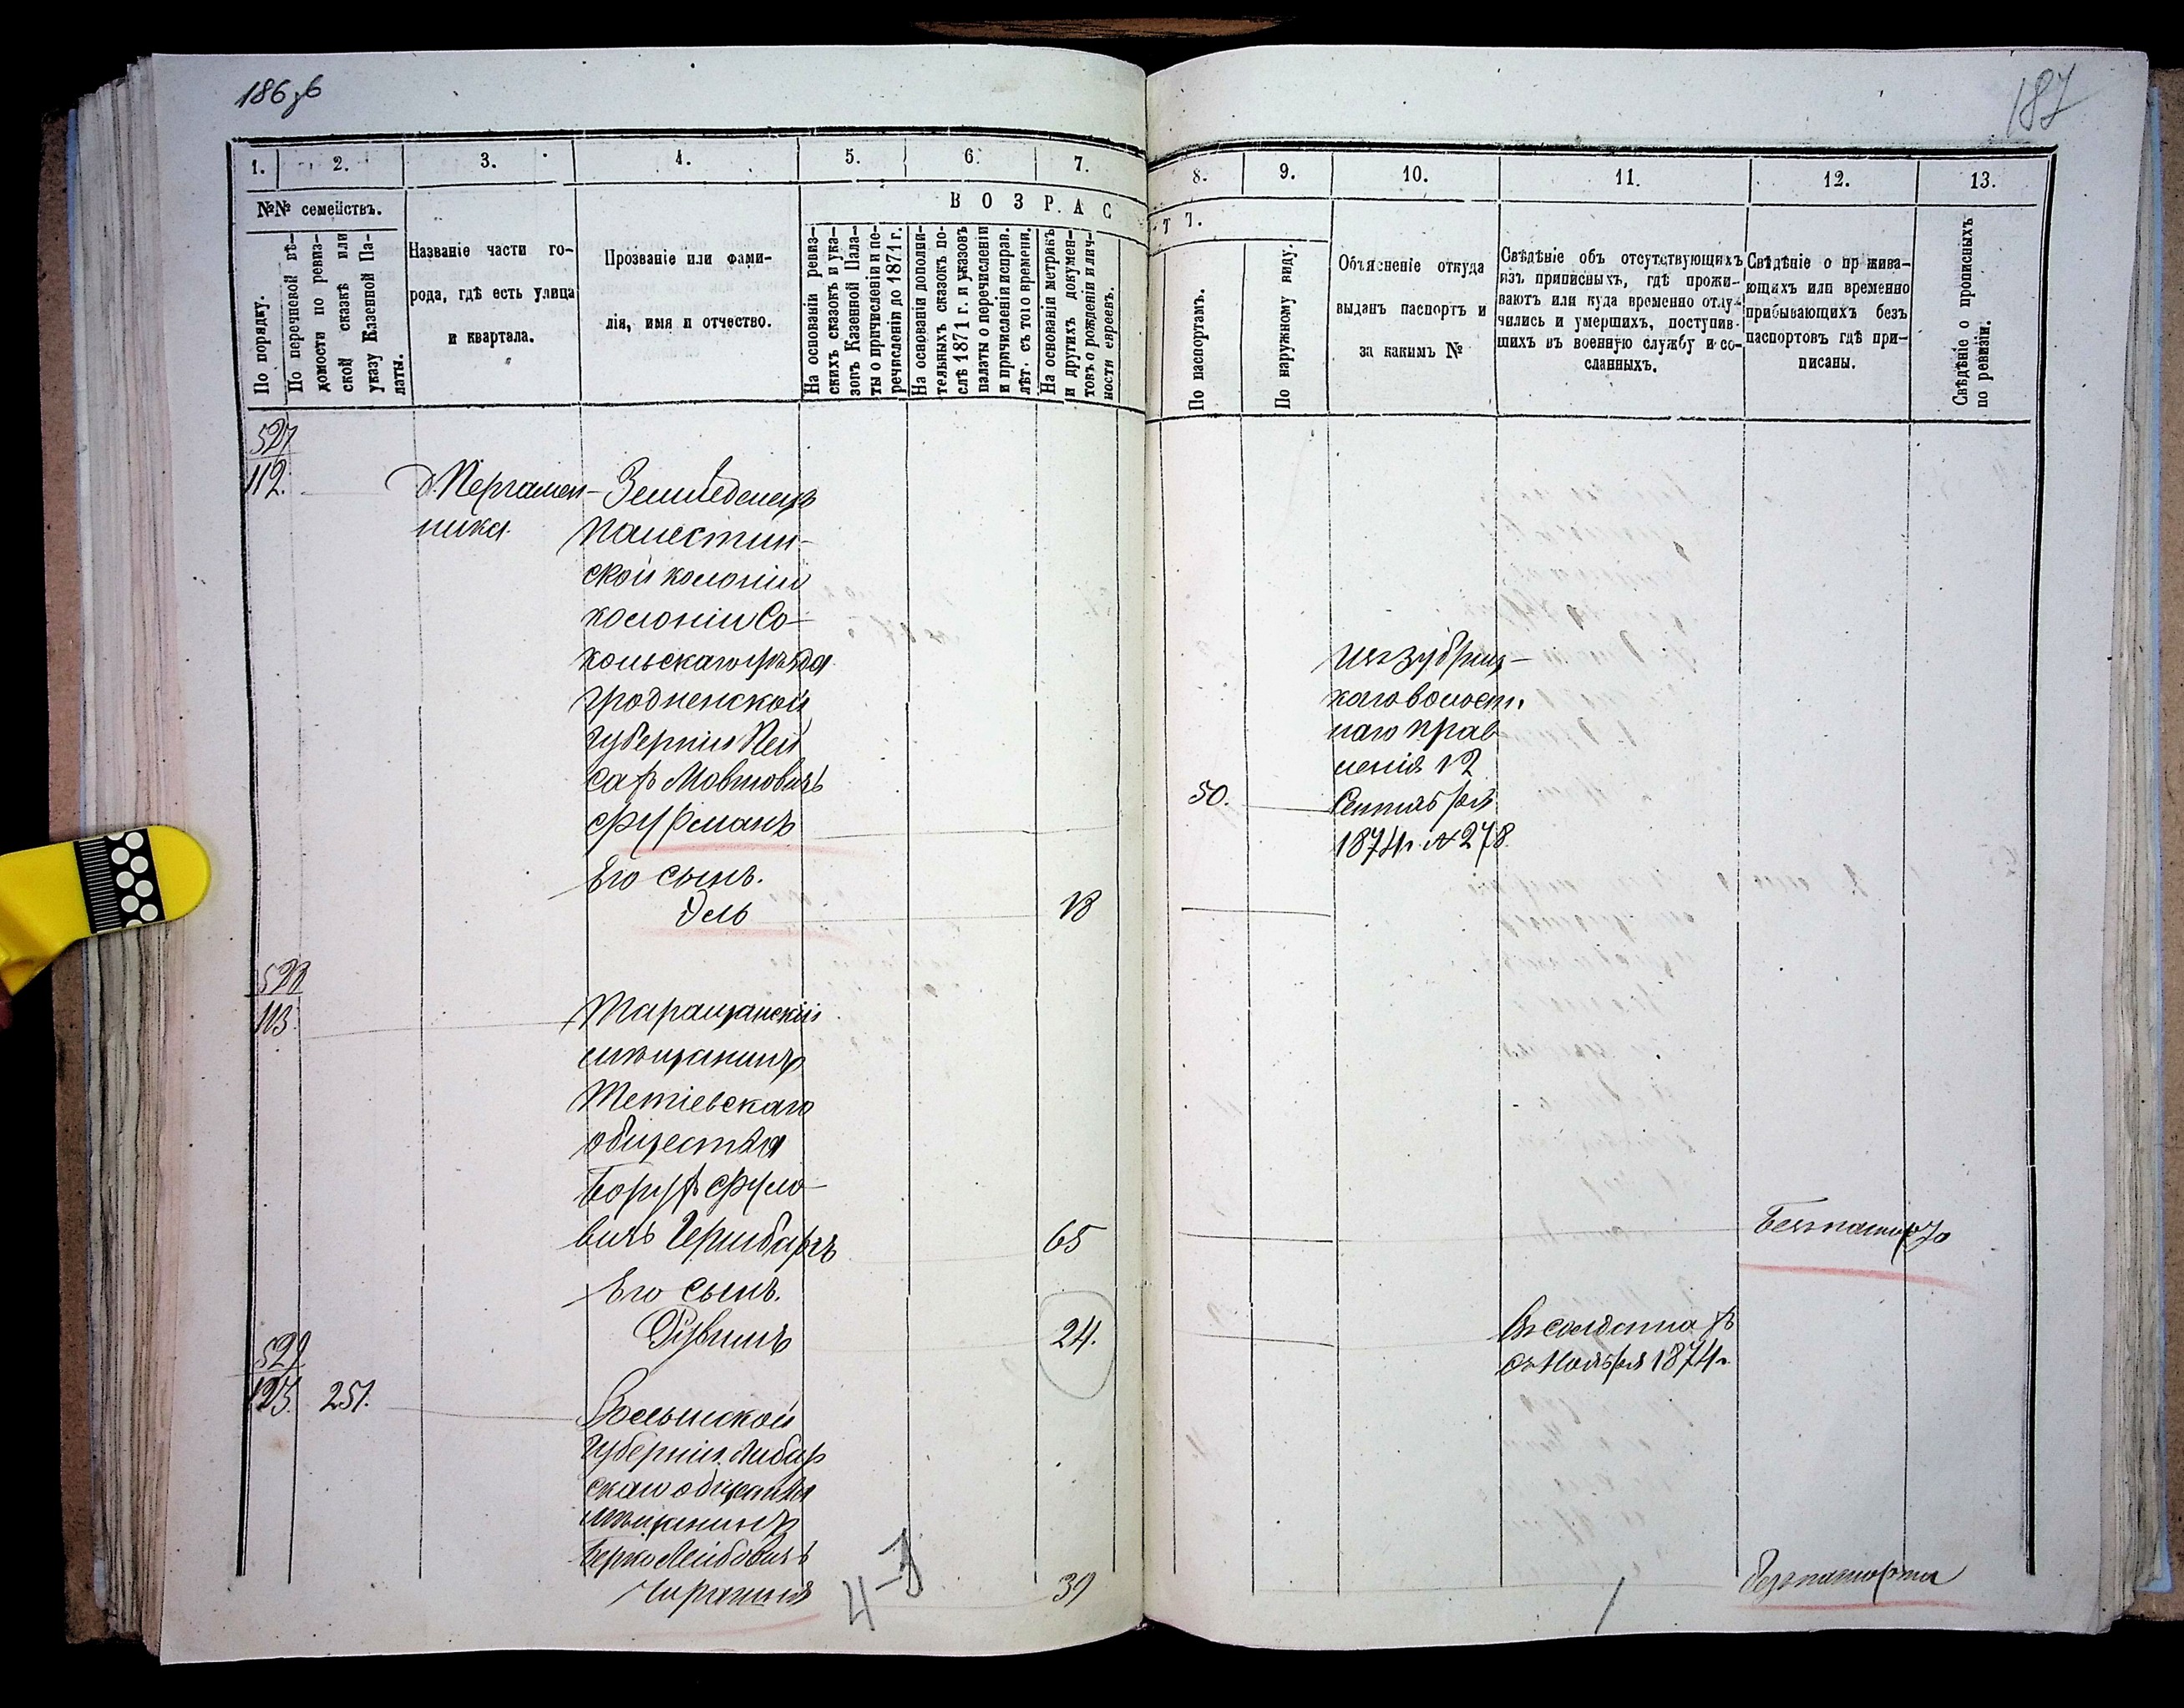 186 зв
187
1.
2.
3.
4.
5.
6.
7.
8.
9.
10.
11.
12.
13.
№№ семействъ.
В О З Р А С
Т Ъ.
По порядку.
По перечневой вѣ-
домости по ревиз-
ской сказкѣ или
указу Казенной Па-
латы.
Названіе части го-
рода, гдѣ есть улица
и квартала.
Прозваніе или фами-
лія, имя и отчество.
На основаніи ревиз-
скихъ сказокъ и ука-
зовъ Казенной Пала-
ты о причисленіи и пе-
речисленіи до 1871 г.
На основаніи дополни-
тельныхъ сказокъ по-
слѣ 1871 г. и указовъ
палаты о перечисленіи
и причисленіи исправ.
лѣт. съ того времени.
На основаніи метрикъ
и другихъ докумен-
товъ о рожденіи и лич-
ности евреевъ.
По паспортамъ.
По наружному виду.
Объясненіе откуда
выданъ паспортъ и
за какимъ №
Свѣдѣніе объ отсутствующихъ
изъ приписныхъ, гдѣ прожи-
ваютъ или куда временно отлу-
чились и умершихъ, поступив-
шихъ въ военную службу и со-
сланныхъ.
Свѣдѣніе о прожива-
ющихъ или временно
прибывающихъ безъ
паспортовъ гдѣ при-
писаны.
Свѣдѣніе о прописныхъ
по ревизіи.
527
112.
д. Пергамен-
ника.
Земледелецъ
Палестин-
ской колоніи
колоніи Со-
кольскаго уѣзда
Гродненской
Губерніи Лей
саръ Мовшовичъ
Фурманъ
50.
Изъ Зубриц-
каго волост.
наго прав
ленія 12
Сентября
1874 г. № 278.
Его сынъ.
Эль
18
528
113.
Таращанскій
мѣщанинъ
Тетіевскаго
общества
Борухъ Фуло-
вичъ Гершбаргъ
65
Безпаспорта
Его сынъ.
Рувинъ
24.
Въ солдатахъ
съ Ноября 1874 г.
529
123.
251.
Волынской
Губерніи Любар
скаго общества
мѣщанинъ
Берко Лейбовичъ
39
безпаспорта
4-3